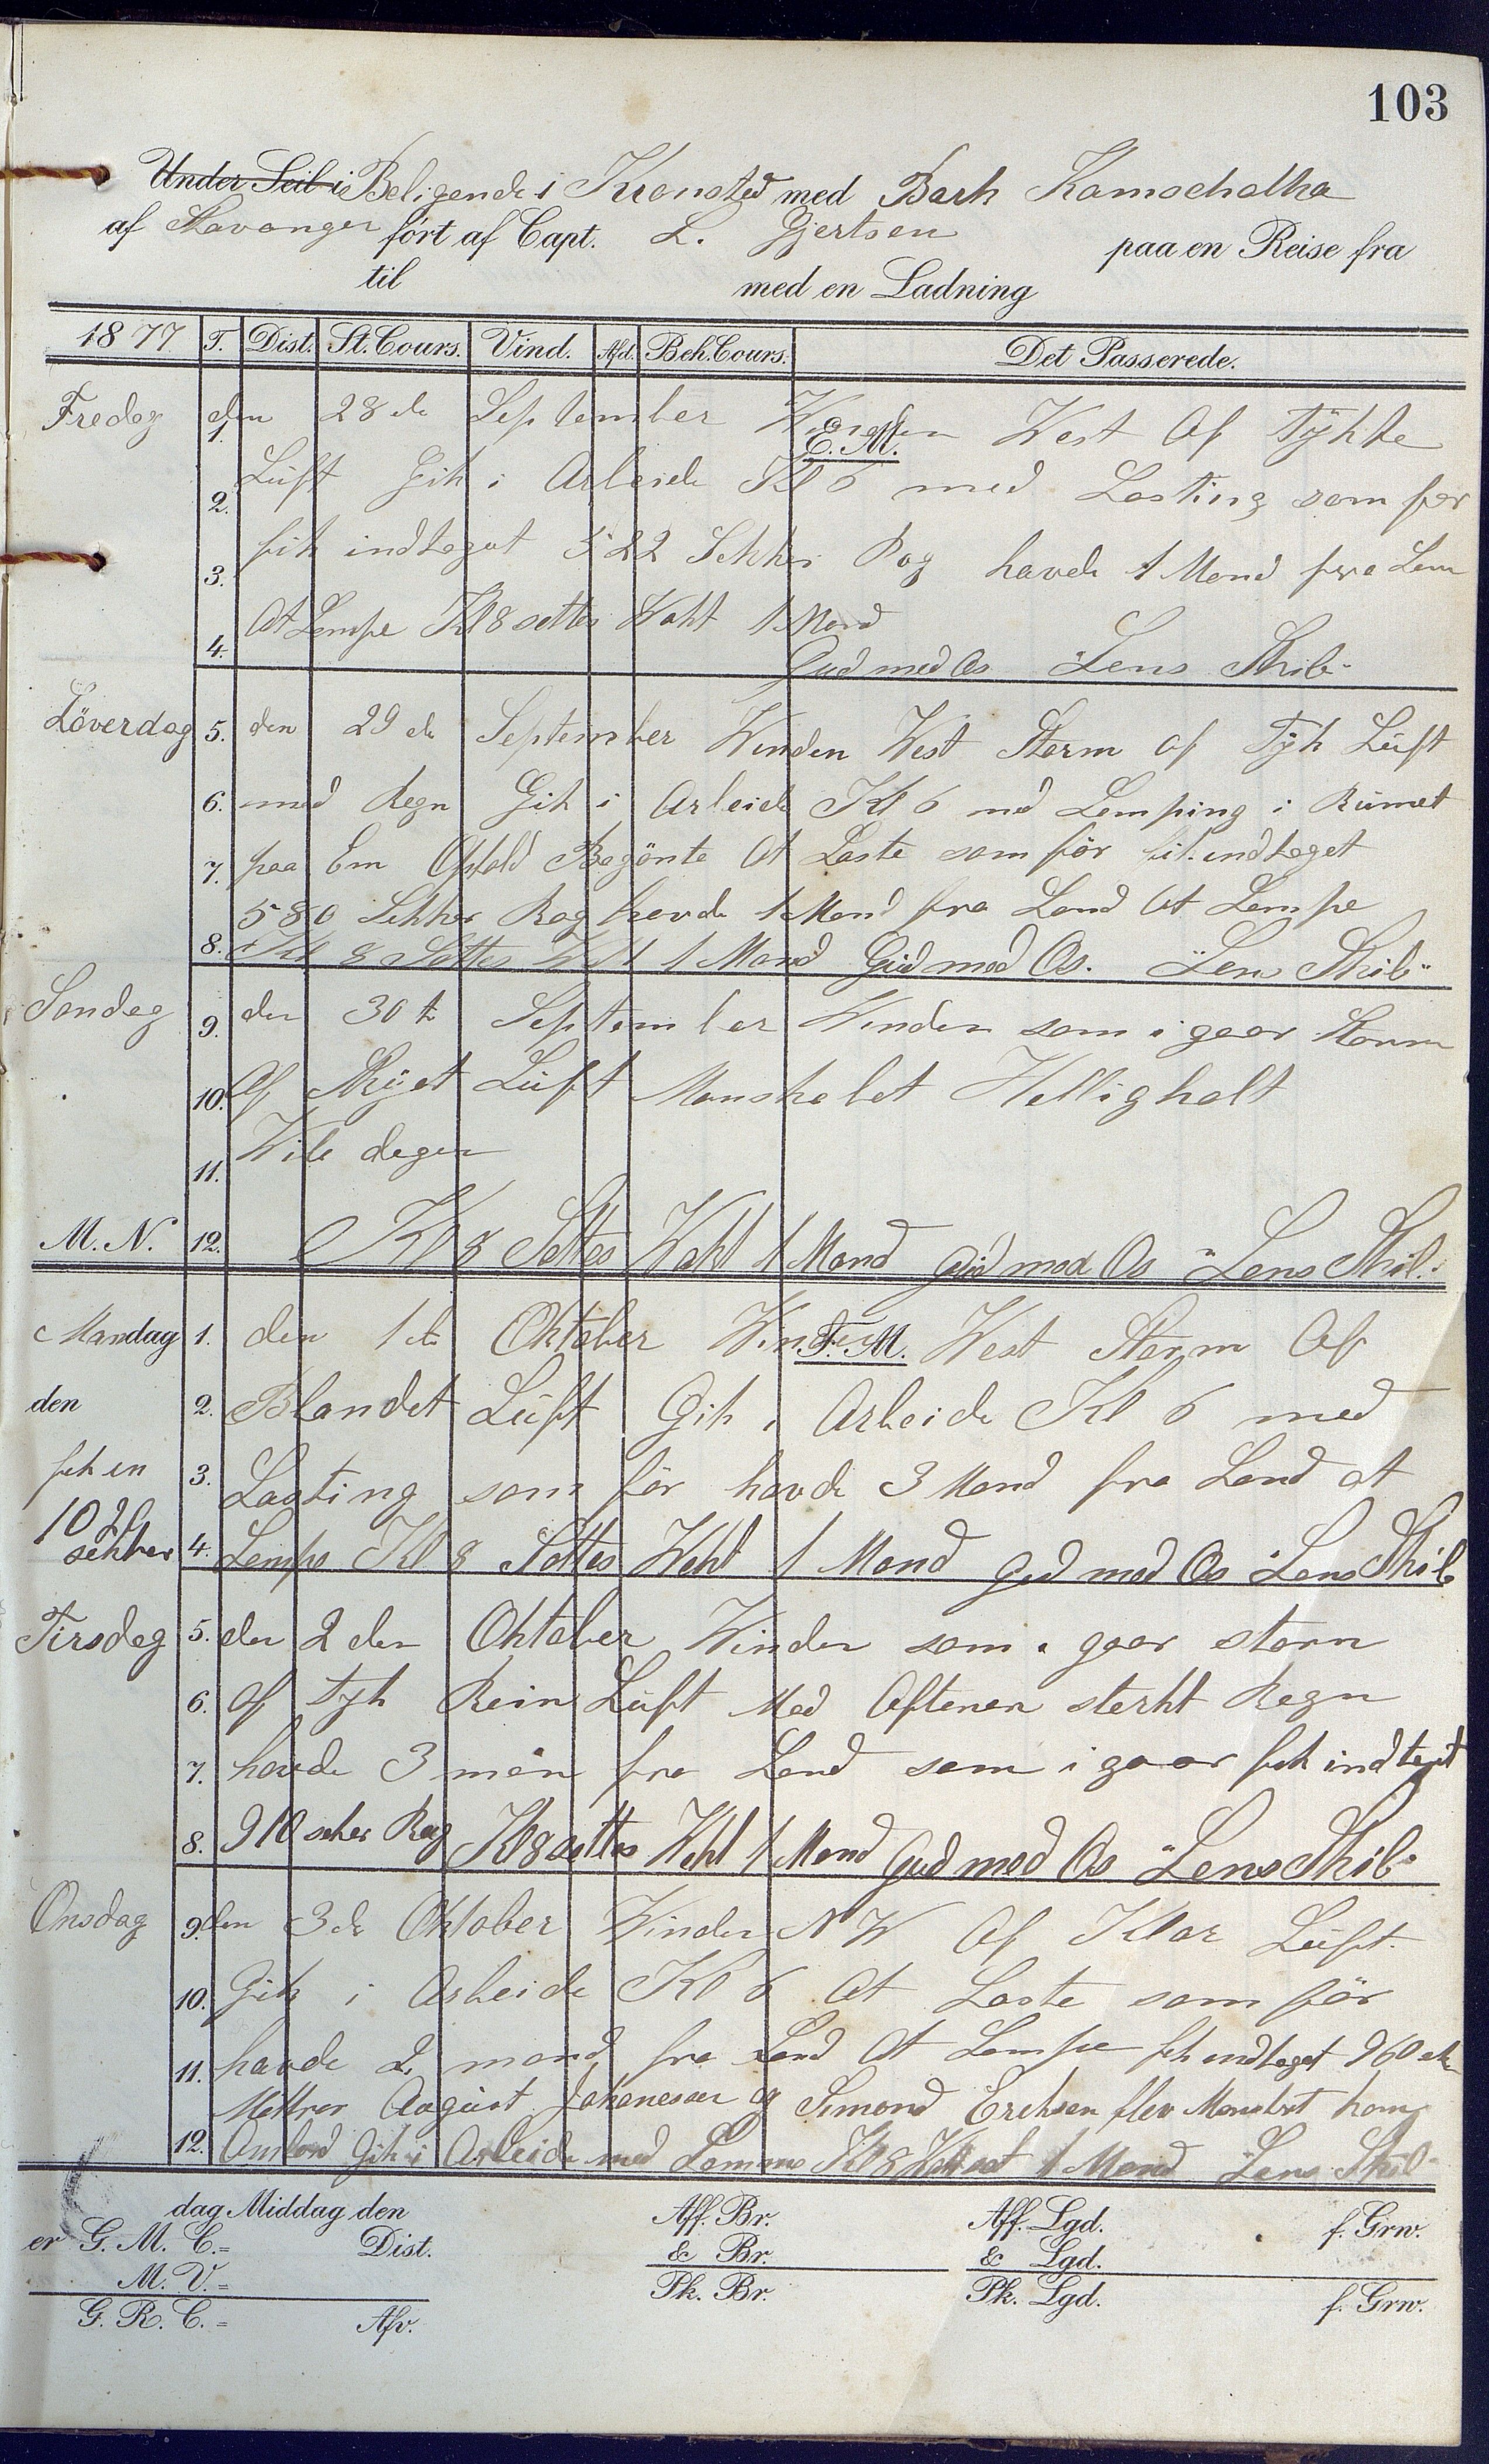 103
Under Seil i Beligende i Kronsted med Bark Kamschatka
af Stavanger ført af Capt. L. Gjertsen paa en Reise fra
til med en Ladning
1877 T. Dist. St. Cours. Vind. Afd. Beh. Cours. Det Passerede.
Fredag den 28de September Winden West Af Tÿkke
1. E. M.
2. Lüft Gik i Arbeide Kl 6 med Lasting som før
3. fik indtaget 522 Sekker Rog havde 1 Mand fra Land
4. At Lempe Kl 8 settes Wakt 1 Mand
Gud med Os "Lens Skib"
Löverdag 5. den 29de September Winden West Storm af Tÿk Lüft
6. med Regn Gik i Arbeide Kl 6 med Lemping i Rümet
7. paa Em Ophold Begönte At Laste som för fik indtaget
580 Sekker Rog havde 1 Mand fra Land At Lempe
8. Kl 8 Settes Wakt 1 Mand Güd med Os. "Lens Skib"
Søndag 9. den 30te September Winden som i gaar Storm
10. Af Skÿet Lüft Manskabet Helligholt
11. Wile dagen
M. N. 12. Kl 8 Settes Wakt 1 Mand Güd med Os "Lens Skib"
Mandag 1. den 1te Oktober Winden F. M. West Storm Af
den 2. Blandet Lüft Gik i Arbeide Kl 6 med
fik en 3. Lasting som för havde 3 Mand fra Land at
1020
sekker 4. Lempe Kl 8 Settes Wakt 1 Mand Gud med Os "Lens Skib
Tirsdag 5. den 2den Oktober Winden som i gaar storm
6. af Tyk Rein Lüft Med Aftenen sterkt Regn
7. havde 3 man fra Land som i gaar fik indtagit
8. 910 seker Rog Kl 8 settes Wakt 1 Mand Gud med Os "Lens Skib"
Onsdag 9. den 3de Oktober Winden N W Af Klar Lüft.
10. Gik i Arbeide Kl 6 At Laste som för
11. havde 2 mand fra Land At Lempe fik indtaget 960 sek
Mattros August Johanesen og Simond Eriksen blev Mønstret kom
12. Ombord Gik i Arbeide med Kl 8 1 Mand "Lens Skib"
dag Middag den Aff. Br. Aff. Lgd. f. Grw.
er G. M. C. = Dist. & Br. & Lgd.
M. V. =
G. R. C. = Afv. Pk. Br. Pk. Lgd. f. Grw.